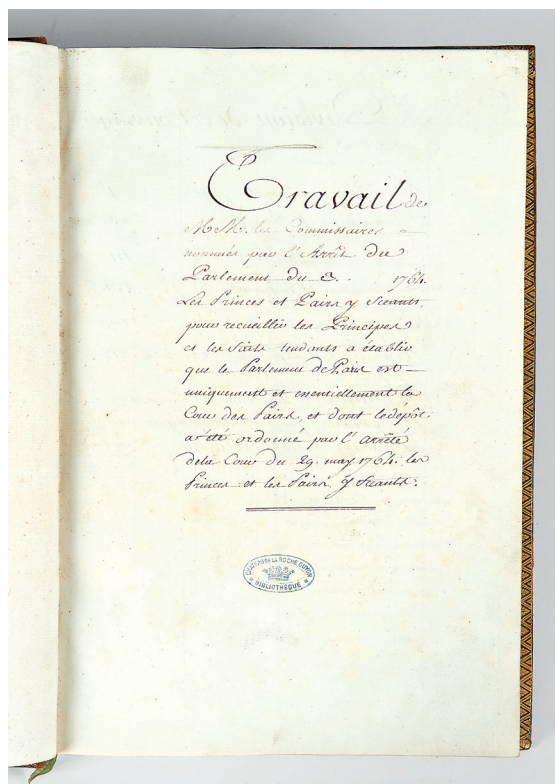 Travail de
MM. les Commissaires
nommés par l'Arrêt du
Parlement du 3. 1764.
Les Princes et Pairs y Séants,
pour recueillir les Principes
et les faits tendants a établir
que le Parlement de Paris est
uniquement et essentiellement la
Cour des Pairs, et dont le dépôt
a été ordonné par l'arrêté
dela Cour du 29. may 1764. les
Princes et les Pairs y Séants.
CHATEAU DE LA ROCHE GUYON
BIBLIOTHEQUE